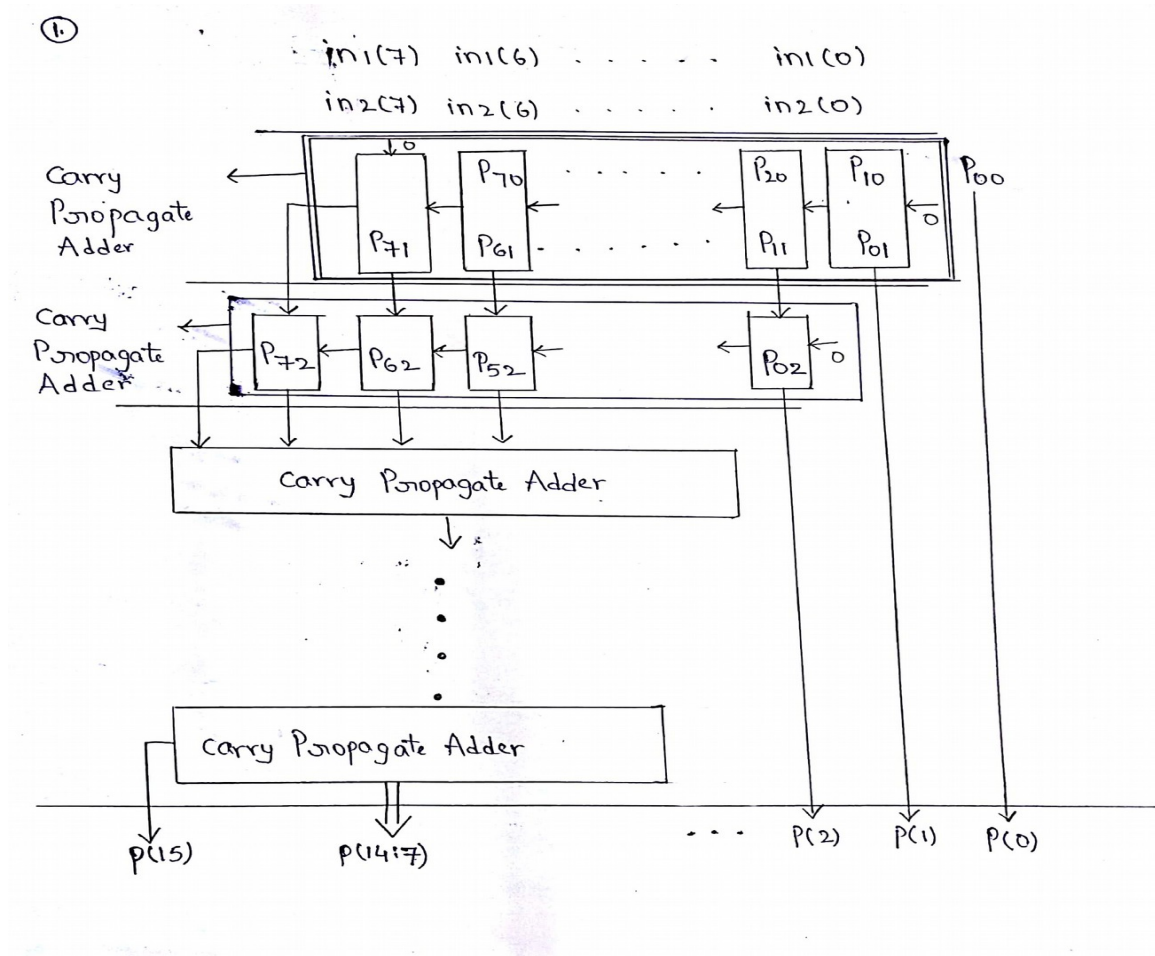 1.
in1(7) in1(6) . . . . . in1(0)
in2(7) in2(6) . . . . . in2(0)
0
Carry
Propagate
Adder
P70 . . . . . P20 P10 P00
0
P71 P61 . . . . . P11 P01
Carry
Propagate
Adder
P72 P62 P52 P02 0
Carry Propagate Adder
Carry Propagate Adder
P(15) P(14:7) . . . P(2) P(1) P(0)